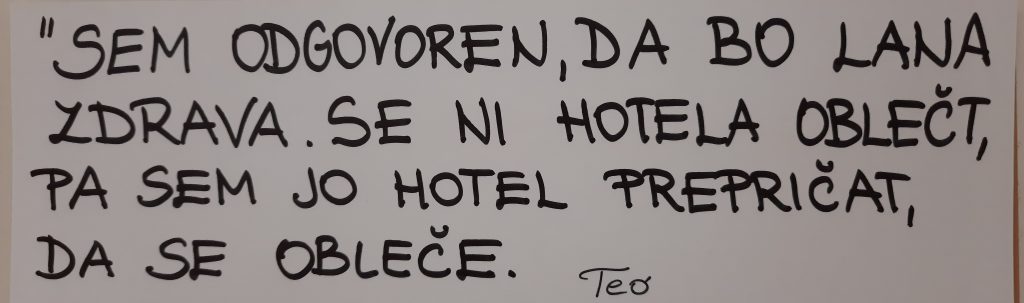 "SEM ODGOVOREN, DA BO LANA
ZDRAVA. SE NI HOTELA OBLEČT,
PA SEM JO HOTEL PREPRIČAT,
DA SE OBLEČE.
Teo